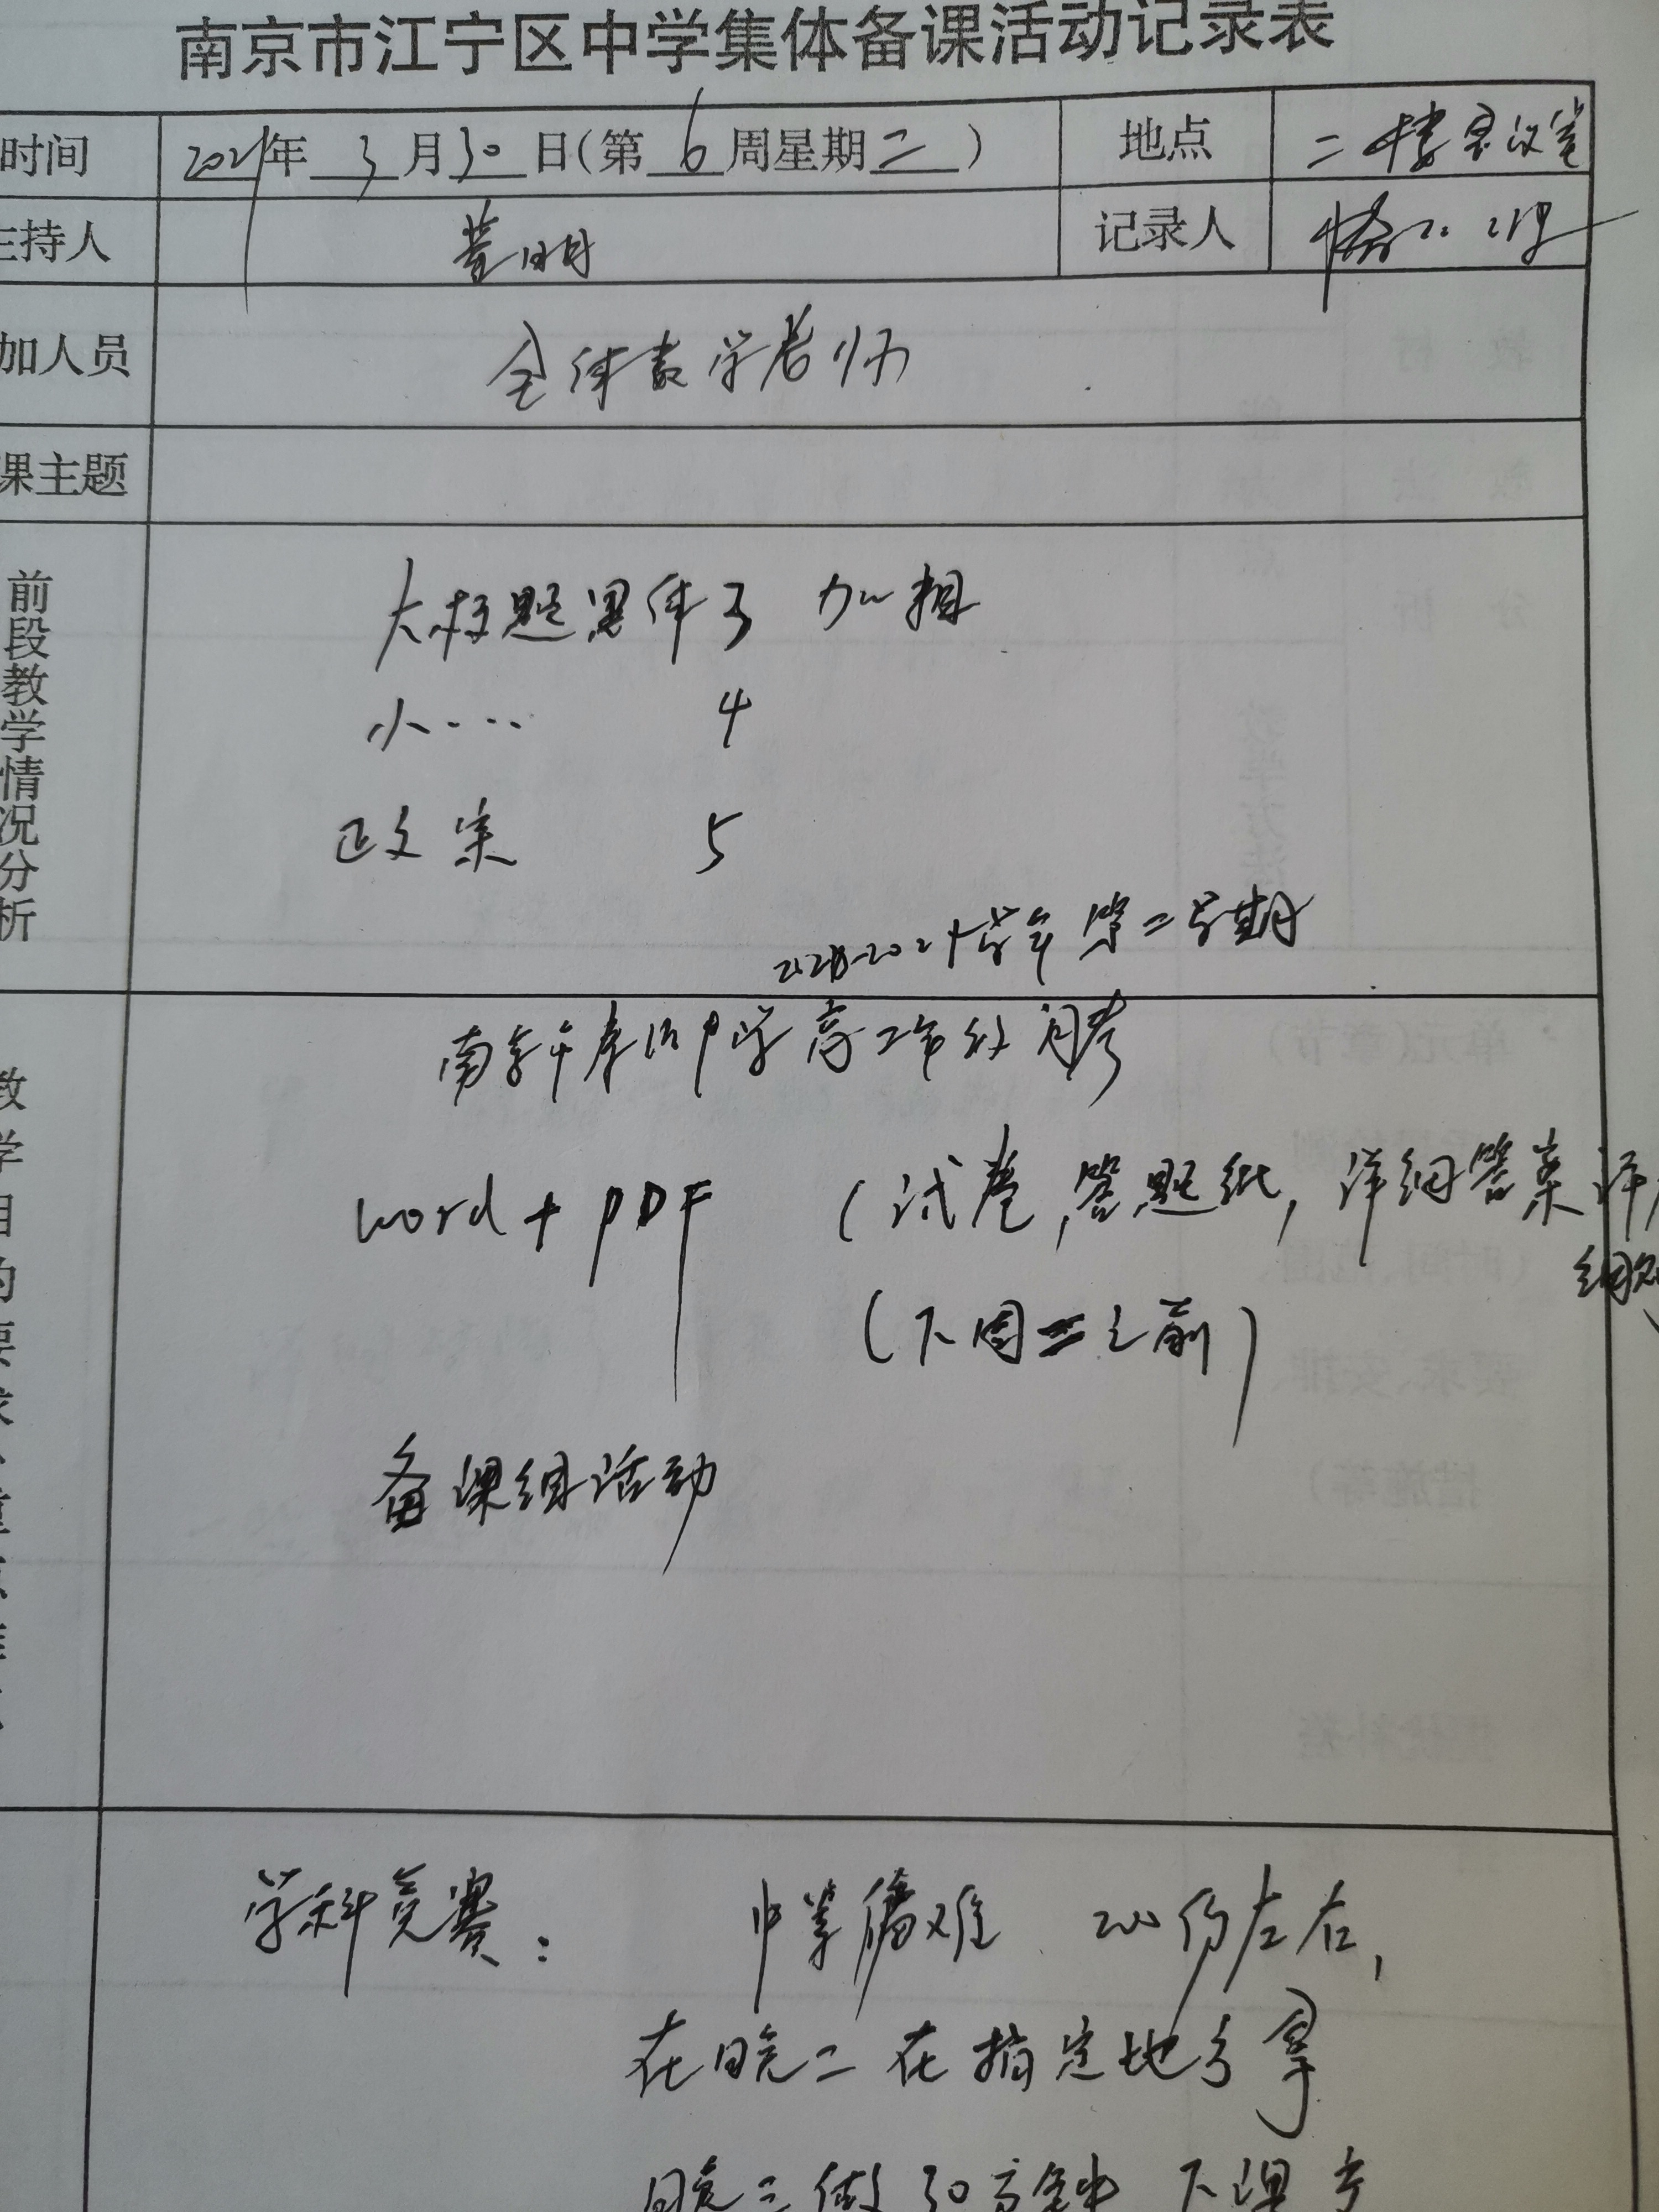 南京市江宁区中学集体备课活动记录表
时间 2021年 3 月 30 日(第 6 周星期 二 ) 地点 二楼会议室
主持人 黄明 记录人
加人员 全体数学老师
课主题
前段教学情况分析
大标题黑体 3 加粗
小···· 4
正文宋 5
2020-2021学年第二学期
南京市 中学高二 月考
教学目的要求
word + PDF (试卷,答题纸,详细答案 评
细则
(下周二之前)
备课组活动
学科竞赛: 中等偏难 200份左右,
在晚二在指定地方拿
晚三做30分钟 下课